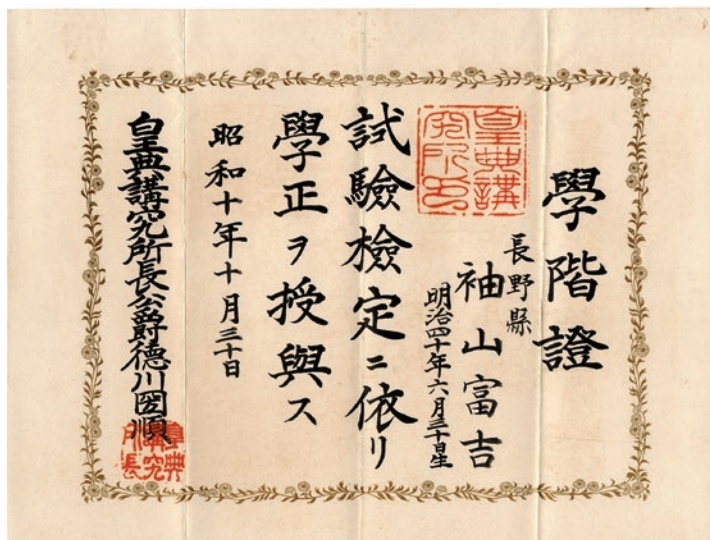 學階證
長野縣
袖山富吉
明治四十年六月三十日生
皇典講究所印
試驗檢定ニ依リ
學正ヲ授與ス
昭和十年十月三十日
皇典講究所長公爵德川圀順
皇典講究所長